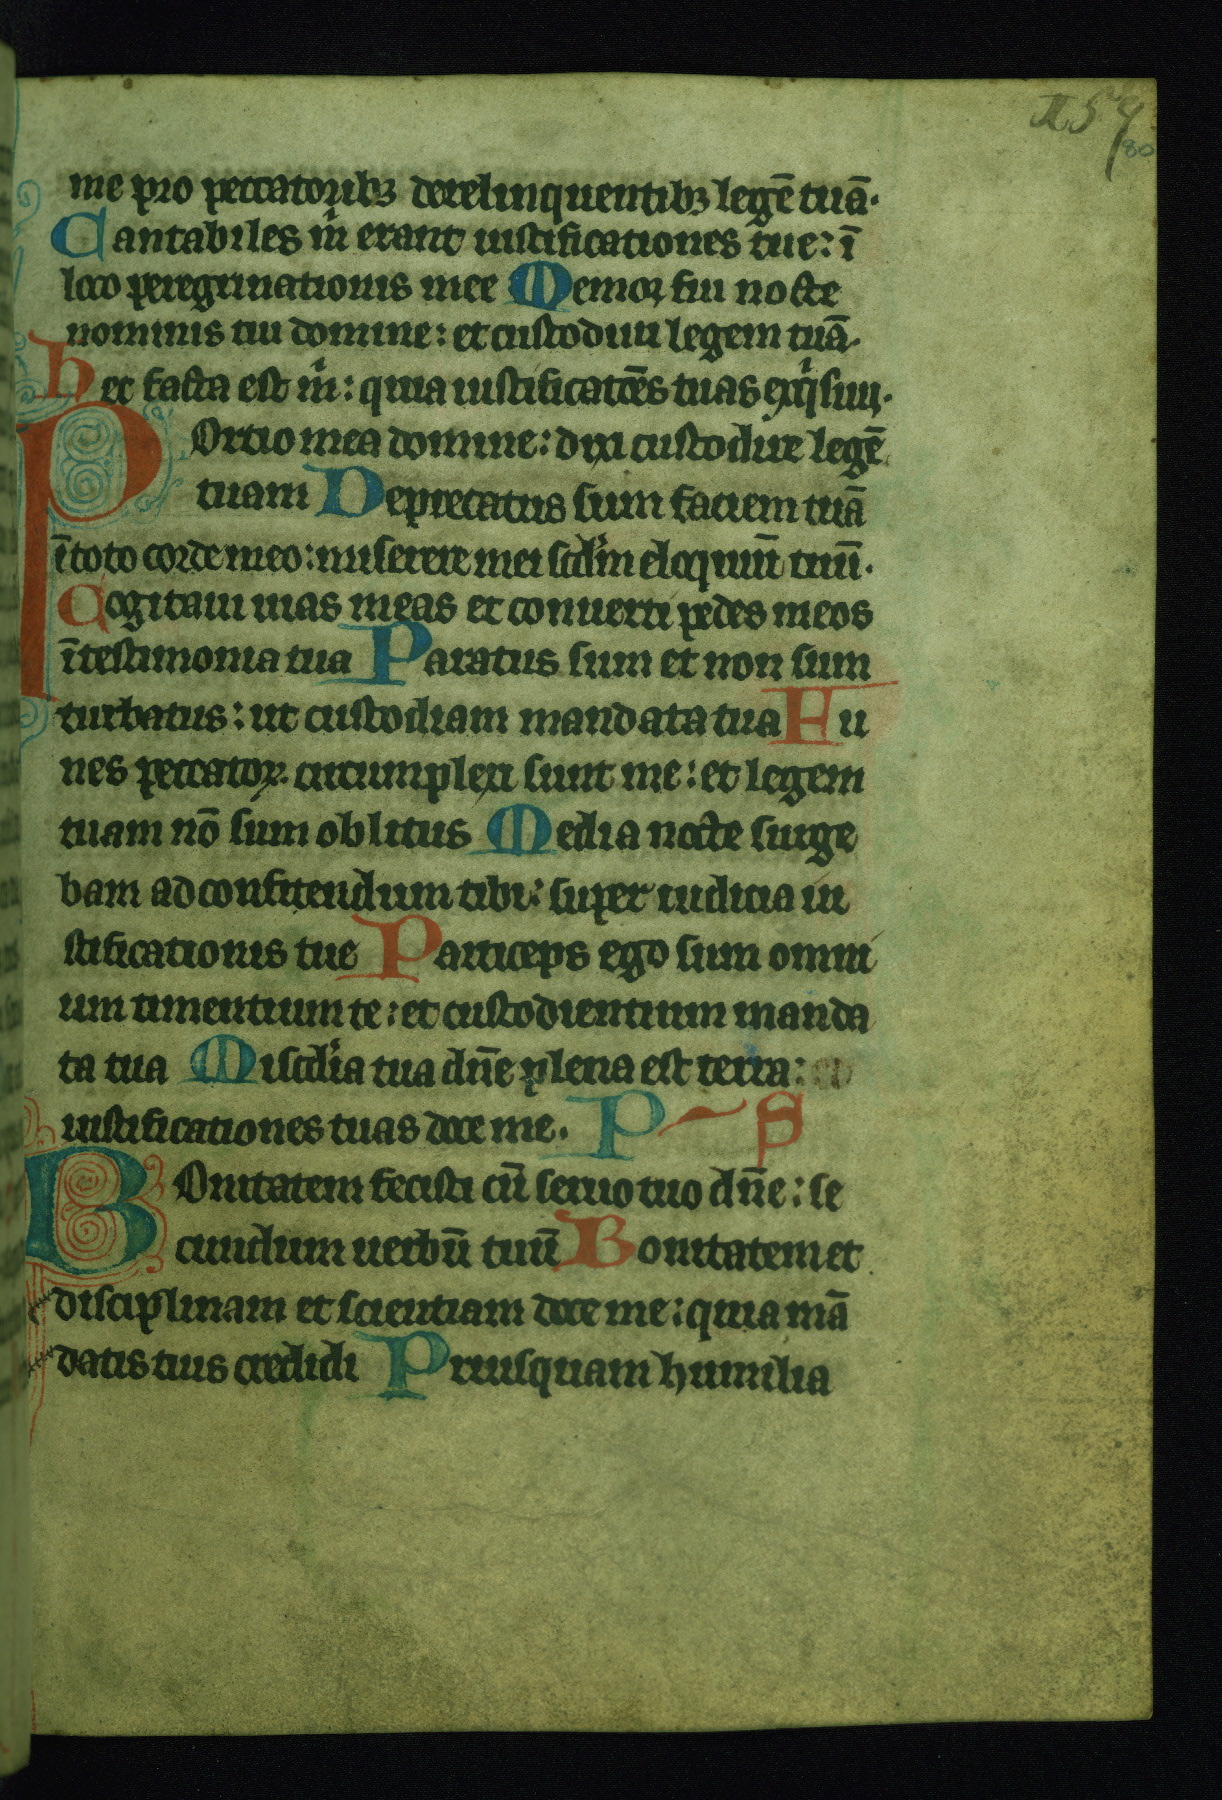 me pro peccatoribꝫ derelinquentibꝫ legē tuā.
Cantabiles m̊ erant iustificationes tue: ī
loco peregrinationis mee Memor fui nocte
nominis tui domine: et custodiui legem tuā.
hec facta est m̊: quia iustificatōes tuas exq̊siui.
POrtio mea domine: dixi custodire legē
tuam Deprecatus sum faciem tuā
ī toto corde meo: miserere mei scdm eloquiū tuū.
Cogitaui uias meas et conuerti pedes meos
ī testimonia tua Paratus sum et non sum
turbatus: ut custodiam mandata tua Fu
nes peccatoꝝ circumplexi sunt me: et legem
tuam nō sum oblitus Media nocte surge
bam ad confitendum tibi: super iudicia iu
stificationis tue Particeps ego sum omni
um timentium te: et custodientium manda
ta tua Miscdia tua dn̄e plena est terra:
iustificationes tuas doce me. P S
BOnitatem fecisti cū seruo tuo dn̄e: se
cundum uerbū tuū Bonitatem et
disciplinam et scientiam doce me: quia mā
datis tuis credidi Priusquam humilia
80